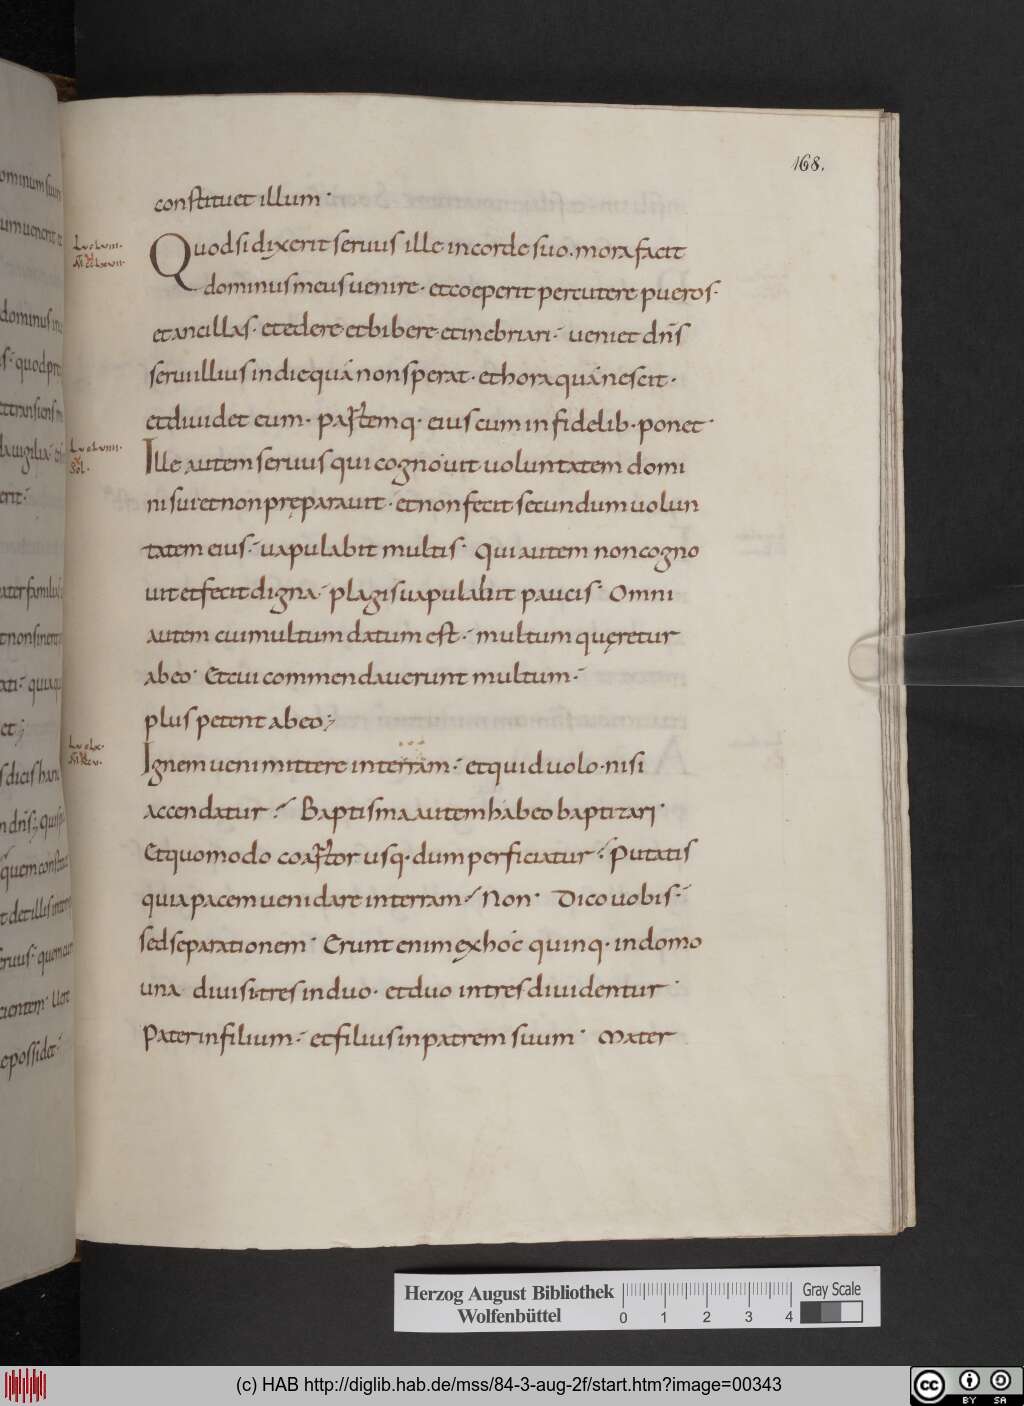 168.
constituet illum·
Quodsi dixerit seruus ille incorde suo. mora facit
dominus meus uenire· et coeperit percutere pueros·
et ancillas· et edere· et bibere· et inebriari· ueniet dñs
serui illius indie quá non sperat· et hora quá nescit·
et diuidet eum· partemq· eius cum infidelib· ponet·
Ille autem seruus qui cognouit uoluntatem domi
ni sui et non pręparauit· et non fecit secundum uolun
tatem eius· uapulabit multis· Qui autem non cogno
uit et fecit digna· plagis uapulabit paucis· Omni
autem cui multum datum est· multum quęretur
abeo· Et cui commendauerunt multum·
plus petent abeo;
Ignem ueni mittere interram· et quid uolo· nisi
accendatur· Baptisma autem habeo baptizari·
Et quomodo coartor usq· dum perficiatur· Putatis
quia pacem ueni dare interram· Non· Dico uobis·
sed separationem· Erunt enim exhoc quinq· indomo
una diuisi· tres induo· et duo intres diuidentur·
Pater infilium· et filius inpatrem suum· Mater
Herzog August Bibliothek
Wolfenbüttel
0 1 2 3 4
Gray Scale
(c) HAB http://diglib.hab.de/mss/84-3-aug-2f/start.htm?image=00343
cc BY SA